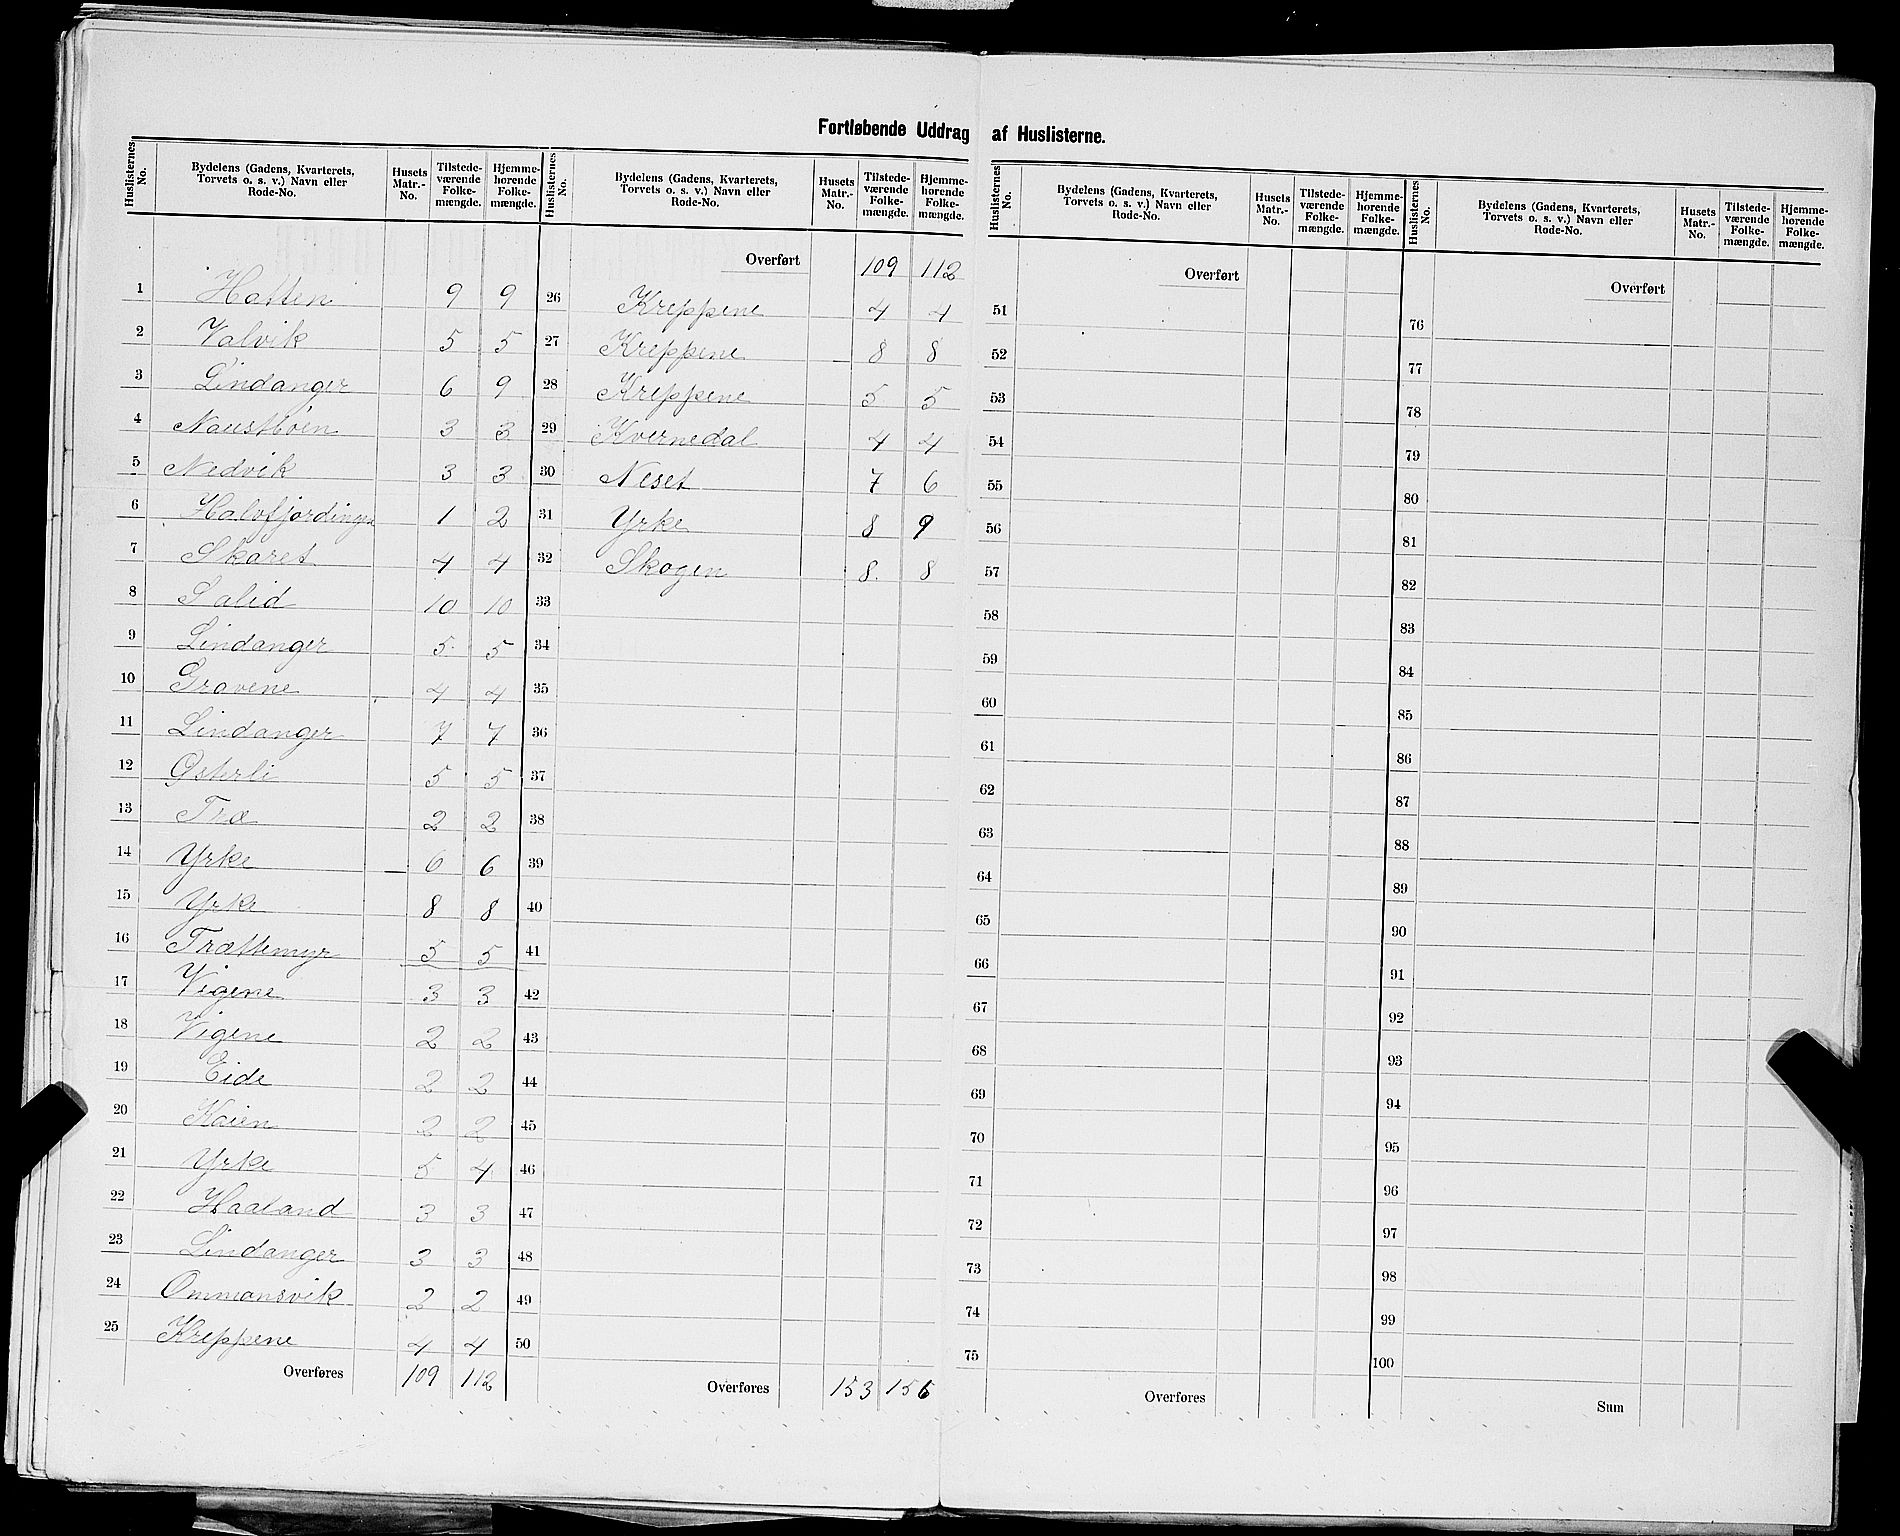 Fortløbende Uddrag af Huslisterne.
Huslisternes No. | Bydelens (Gadens, Kvarterets, Torvets o. s. v.) Navn eller Rode-No. | Husets Matr.-No. | Tilstedeværende Folkemængde. | Hjemmehørende Folkemængde.
1 Hatten 9 9
2 Valvik 5 5
3 Lindanger 6 9
4 Naustbøen 3 3
5 Nedvik 3 3
6 Halvfjordingen 1 2
7 Skaret 4 4
8 Salid 10 10
9 Lindanger 5 5
10 Gravene 4 4
11 Lindanger 7 7
12 Østerli 5 5
13 Træ 2 2
14 Yrke 6 6
15 Yrke 8 8
16 Trættemyr 5 5
17 Vigene 3 3
18 Vigene 2 2
19 Eide 2 2
20 Kaien 2 2
21 Yrke 5 4
22 Haaland 3 3
23 Lindanger 3 3
24 Ommansvik 2 2
25 Kreppene 4 4
Overføres 109 112
Huslisternes No. | Bydelens (Gadens, Kvarterets, Torvets o. s. v.) Navn eller Rode-No. | Husets Matr.-No. | Tilstedeværende Folkemængde. | Hjemmehørende Folkemængde.
Overført 109 112
26 Kreppene 4 4
27 Kreppene 8 8
28 Kreppene 5 5
29 Kvernedal 4 4
30 Neset 7 6
31 Yrke 8 9
32 Skogen 8 8
33
34
35
36
37
38
39
40
41
42
43
44
45
46
47
48
49
50
Overføres 153 156
Huslisternes No. | Bydelens (Gadens, Kvarterets, Torvets o. s. v.) Navn eller Rode-No. | Husets Matr.-No. | Tilstedeværende Folkemængde. | Hjemmehørende Folkemængde.
Overført
51
52
53
54
55
56
57
58
59
60
61
62
63
64
65
66
67
68
69
70
71
72
73
74
75
Overføres
Huslisternes No. | Bydelens (Gadens, Kvarterets, Torvets o. s. v.) Navn eller Rode-No. | Husets Matr.-No. | Tilstedeværende Folkemængde. | Hjemmehørende Folkemængde.
Overført
76
77
78
79
80
81
82
83
84
85
86
87
88
89
90
91
92
93
94
95
96
97
98
99
100
Sum